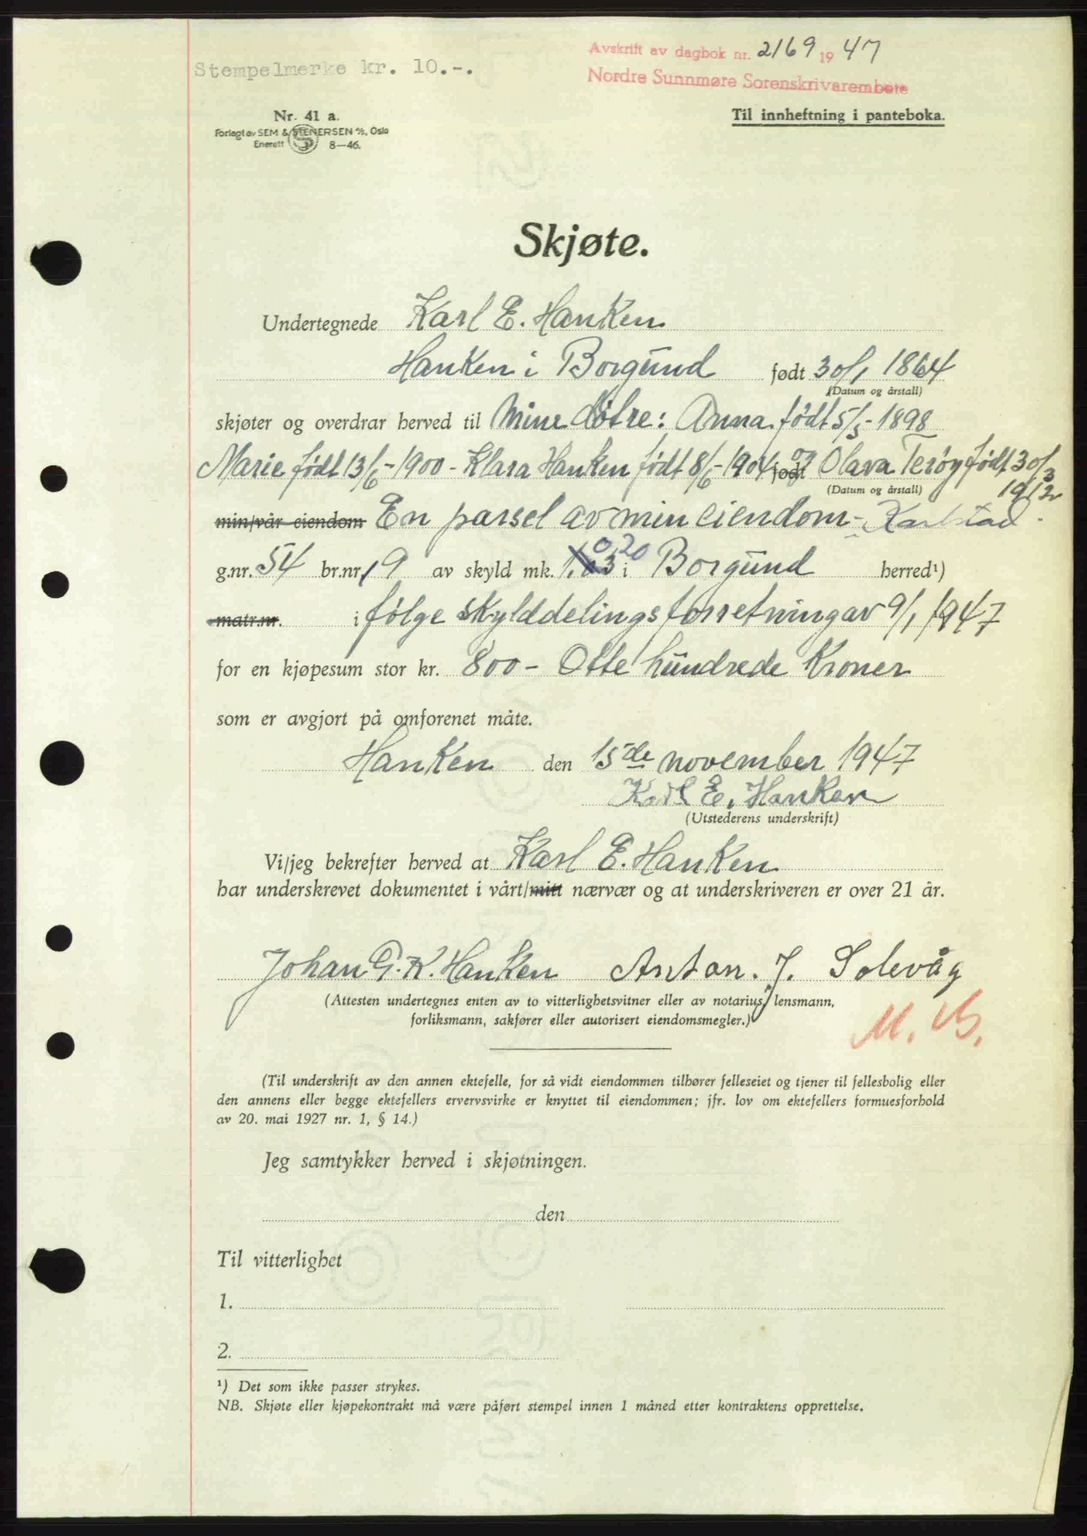 Stempelmerke kr. 10.-.
Avskrift av dagbok nr. 2169 1947
Nordre Sunnmøre Sorenskrivarembete
Nr. 41 a.
Forlagt av SEM & STENERSEN A/S, Oslo
Enerett 8—46.
Til innheftning i panteboka.
Skjøte.
Undertegnede Karl E. Hanken
Hanken i Borgund født 30/1 1864
(Datum og årstall)
skjøter og overdrar herved til Mine døtre: Anna født 5/5-1898
Marie født 13/6-1900 - Klara Hanken født 8/6-1904 født og Olava Terøy født 30/3
(Datum og årstall) 1912
min/vår eiendom En parsel av min eiendom - Karlstad.
g.nr. 54 br.nr. 19 av skyld mk. 0.20 i Borgund herred¹)
matr.nr. i følge skylddelingsforretning av 9/1 1947
for en kjøpesum stor kr. 800 - Otte hundrede Kroner
som er avgjort på omforenet måte.
Hanken den 15de november 1947
Karl E. Hanken
(Utstederens underskrift)
Vi/jeg bekrefter herved at Karl E. Hanken
har underskrevet dokumentet i vårt/mitt nærvær og at underskriveren er over 21 år.
Johan G. K. Hanken Anton. J. Solevåg
(Attesten undertegnes enten av to vitterlighetsvitner eller av notarius, lensmann,
forliksmann, sakfører eller autorisert eiendomsmegler.)
(Til underskrift av den annen ektefelle, for så vidt eiendommen tilhører felleseiet og tjener til fellesbolig eller
den annens eller begge ektefellers ervervsvirke er knyttet til eiendommen; jfr. lov om ektefellers formuesforhold
av 20. mai 1927 nr. 1, § 14.)
Jeg samtykker herved i skjøtningen.
den
Til vitterlighet
1.
2.
¹) Det som ikke passer strykes.
NB. Skjøte eller kjøpekontrakt må være påført stempel innen 1 måned etter kontraktens opprettelse.